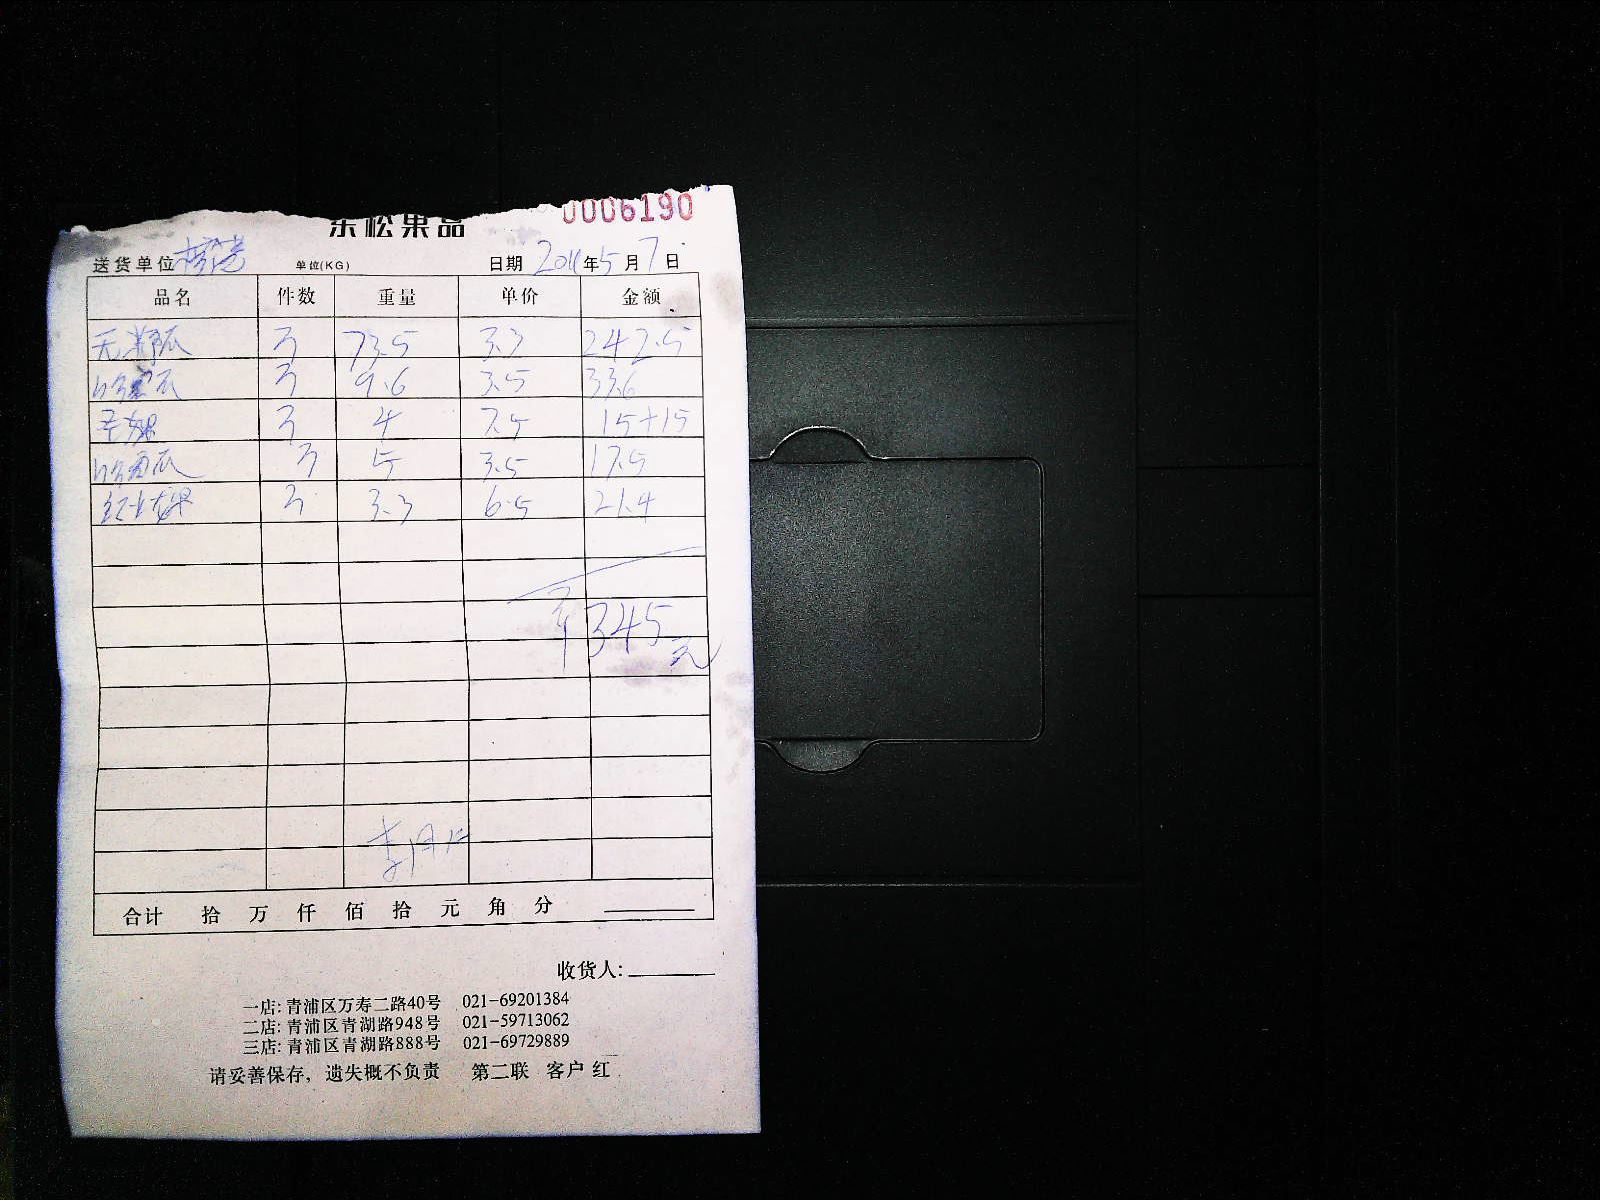 东松果品 0006190
送货单位 单位(KG) 日期 2014年5月7日
品名 件数 重量 单价 金额
无籽瓜 73.5 3.3 242.5
哈密瓜 9.6 3.5 33.6
芒果 4 7.5 15+15
哈密瓜 5 3.5 17.5
红火龙果 3.3 6.5 21.4
345元
合计 拾 万 仟 佰 拾 元 角 分
收货人:
一店: 青浦区万寿二路40号 021-69201384
二店: 青浦区青湖路948号 021-59713062
三店: 青浦区青湖路888号 021-69729889
请妥善保存，遗失概不负责 第二联 客户 红